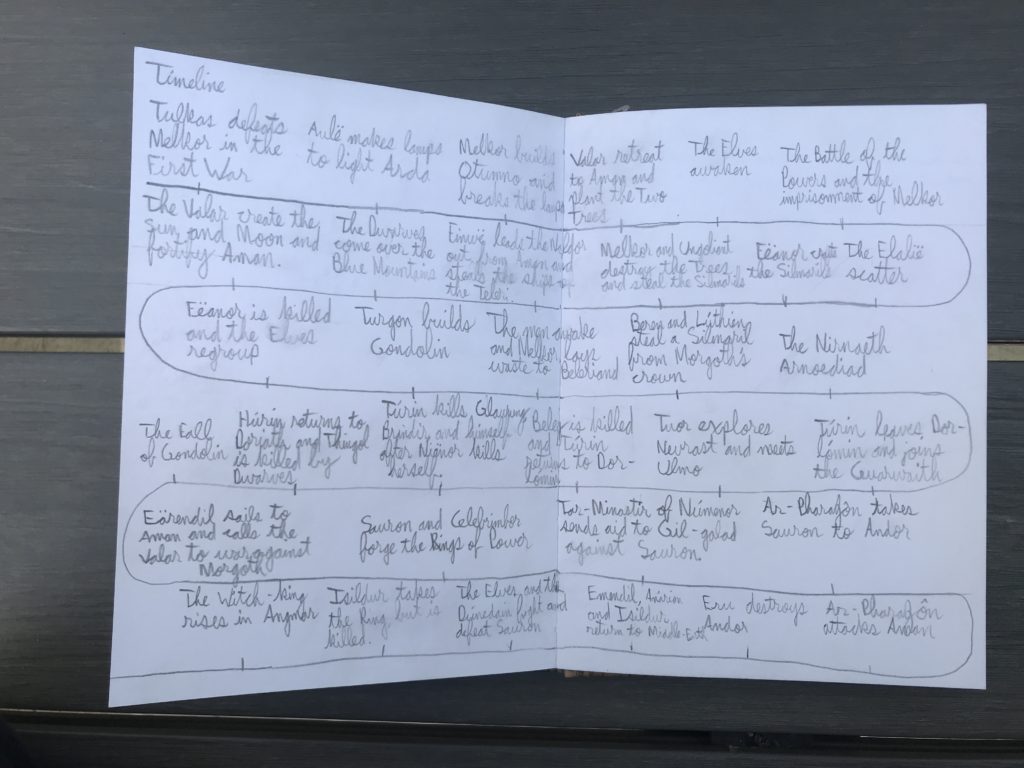 Timeline
Tulkas defeats
Melkor in the
First War
Aulë makes lamps
to light Arda
Melkor builds
Utumno and
breaks the lamps
Valar retreat
to Aman and
plant the Two
Trees
The Elves
awaken
The Battle of the
Powers and the
imprisonment of Melkor
The Valar create the
Sun and Moon and
fortify Aman.
The Dwarves
come over the
Blue Mountains
leads the Noldor
out from Aman and
steals the ships of
the Teleri
Melkor and Ungoliant
destroy the Trees
and steal the Silmarils
Fëanor
the Silmarils
The Eldalië
scatter
Fëanor is killed
and the Elves
regroup
Turgon builds
Gondolin
The men awake
and Melkor lays
waste to Beleriand
Beren and Lúthien
steal a Silmaril
from Morgoth's
crown
The Nirnaeth
Arnoediad
The Fall
of Gondolin
Húrin returns to
Doriath and Thingol
is killed by
Dwarves
Túrin kills Glaurung
Brandir and himself
after Nienor kills
herself.
Beleg is killed
and Túrin
returns to Dor-
lómin
Tuor explores
Nevrast and meets
Ulmo
Túrin leaves Dor-
lómin and joins
the Gaurwaith
Eärendil sails to
Aman and calls the
Valar to war against
Morgoth
Sauron and Celebrimbor
forge the Rings of Power
Tar-Minastir of Númenor
sends aid to Gil-galad
against Sauron.
Ar-Pharazôn takes
Sauron to Andor
The Witch-king
rises in Angmar
Isildur takes
the Ring but is
killed.
The Elves and the
Dúnedain fight and
defeat Sauron
Anárion
and Isildur
return to Middle-Earth
Eru destroys
Andor
Ar-Pharazôn
attacks Aman